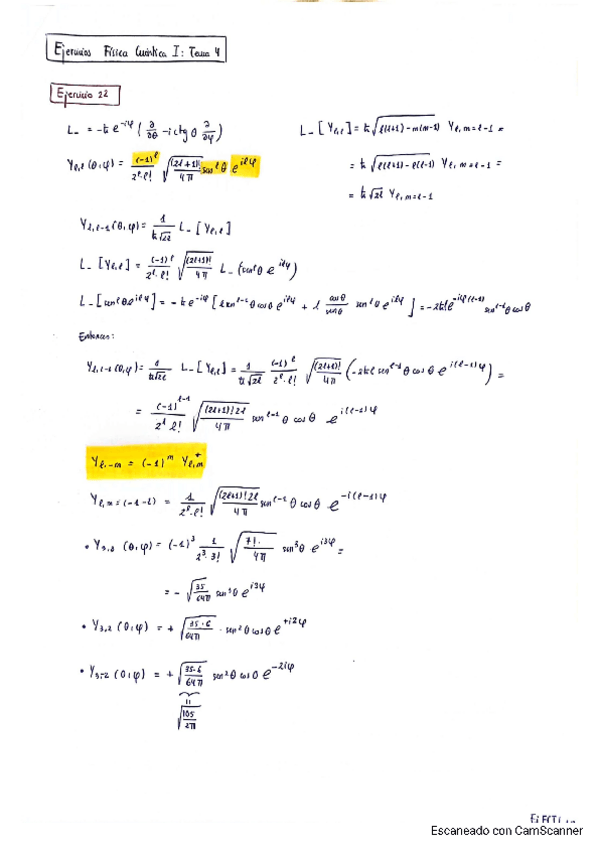 Ejercicios Física Cuántica I: Tema 4
Ejercicio 22
L_ = -ħ e^{-iφ} ( ∂/∂θ - i ctg θ ∂/∂φ )
L_ [Y_{ℓ,ℓ}] = ħ √(ℓ(ℓ+1) - m(m-1)) Y_{ℓ, m=ℓ-1} =
Y_{ℓ,ℓ} (θ,φ) = (-1)^ℓ / (2^ℓ · ℓ!) √((2ℓ+1)! / 4π) sen^ℓ θ e^{iℓφ}
= ħ √(ℓ(ℓ+1) - ℓ(ℓ-1)) Y_{ℓ, m=ℓ-1} =
= ħ √(2ℓ) Y_{ℓ, m=ℓ-1}
Y_{ℓ,ℓ-1} (θ,φ) = 1 / (ħ√(2ℓ)) L_ [Y_{ℓ,ℓ}]
L_ [Y_{ℓ,ℓ}] = (-1)^ℓ / (2^ℓ · ℓ!) √((2ℓ+1)! / 4π) L_ (sen^ℓ θ e^{iℓφ})
L_ [sen^ℓ θ e^{iℓφ}] = -ħ e^{-iφ} [ ℓ sen^{ℓ-1} θ cos θ e^{iℓφ} + ℓ cos θ / sen θ sen^ℓ θ e^{iℓφ} ] = -2ħℓ e^{-iφ(ℓ-1)} sen^{ℓ-1} θ cos θ
Entonces:
Y_{ℓ,ℓ-1} (θ,φ) = 1 / (ħ√(2ℓ)) L_ [Y_{ℓ,ℓ}] = 1 / (ħ√(2ℓ)) (-1)^ℓ / (2^ℓ · ℓ!) √((2ℓ+1)! / 4π) (-2ħℓ sen^{ℓ-1} θ cos θ e^{i(ℓ-1)φ}) =
= (-1)^{ℓ-1} / (2^ℓ ℓ!) √((2ℓ+1)! 2ℓ / 4π) sen^{ℓ-1} θ cos θ e^{i(ℓ-1)φ}
Y_{ℓ,-m} = (-1)^m Y_{ℓ,m}^*
Y_{ℓ, m=(-1-ℓ)} = 1 / (2^ℓ · ℓ!) √((2ℓ+1)! 2ℓ / 4π) sen^{ℓ-1} θ cos θ e^{-i(ℓ-1)φ}
• Y_{3,3} (θ,φ) = (-1)^3 1 / (2^3 · 3!) √(7! / 4π) sen^3 θ e^{i3φ} =
= - √(35 / 64π) sen^3 θ e^{i3φ}
• Y_{3,2} (θ,φ) = + √(35·6 / 64π) · sen^2 θ cos θ e^{+i2φ}
• Y_{3,-2} (θ,φ) = + √(35·6 / 64π) sen^2 θ cos θ e^{-2iφ}
=
√(105 / 2π)
Escaneado con CamScanner